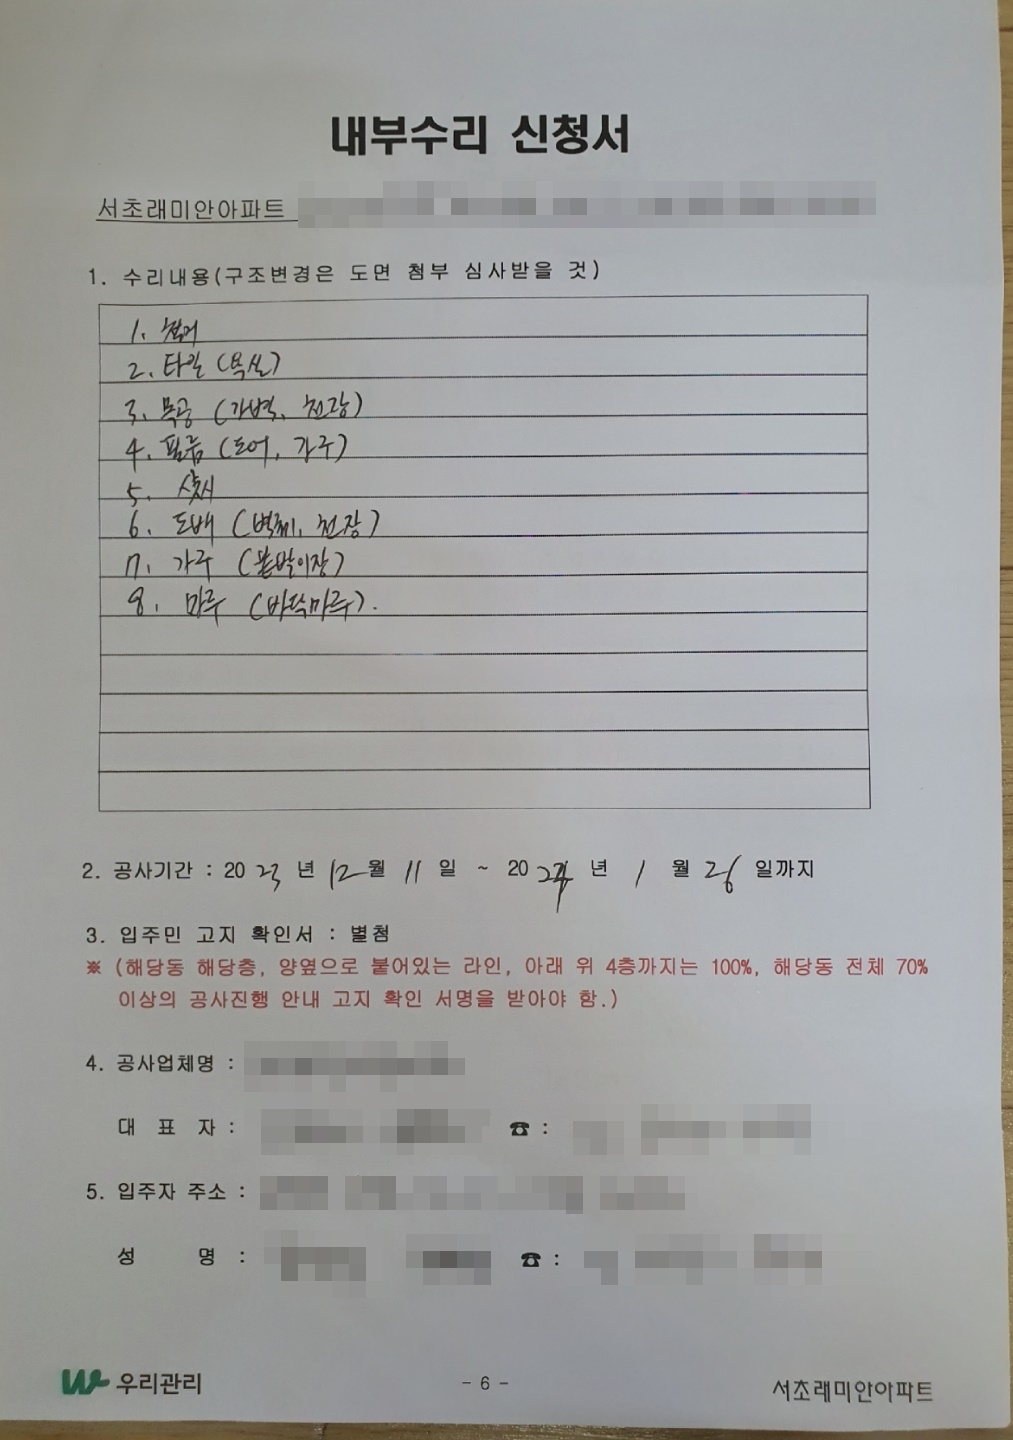 내부수리 신청서
서초래미안아파트
1. 수리내용(구조변경은 도면 첨부 심사받을 것)
1. 철거
2. 타일 (욕실)
3. 목공 (가벽, 천장)
4. 필름 (도어, 가구)
5. 샷시
6. 도배 (벽체, 천장)
7. 가구 (붙박이장)
8. 마루 (바닥마루).
2. 공사기간 : 2023 년 12월 11 일 ~ 2024 년 1 월 26 일까지
3. 입주민 고지 확인서 : 별첨
※ (해당동 해당층, 양옆으로 붙어있는 라인, 아래 위 4층까지는 100%, 해당동 전체 70%
이상의 공사진행 안내 고지 확인 서명을 받아야 함.)
4. 공사업체명 :
대 표 자 : ☎ :
5. 입주자 주소 :
성 명 : ☎ :
우리관리 - 6 - 서초래미안아파트